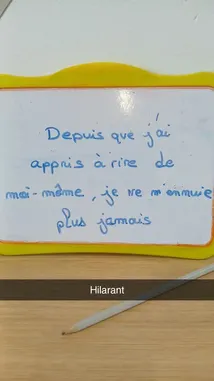 Depuis que j'ai
appris à rire de
moi-même, je ne m'ennuie
plus jamais
Hilarant